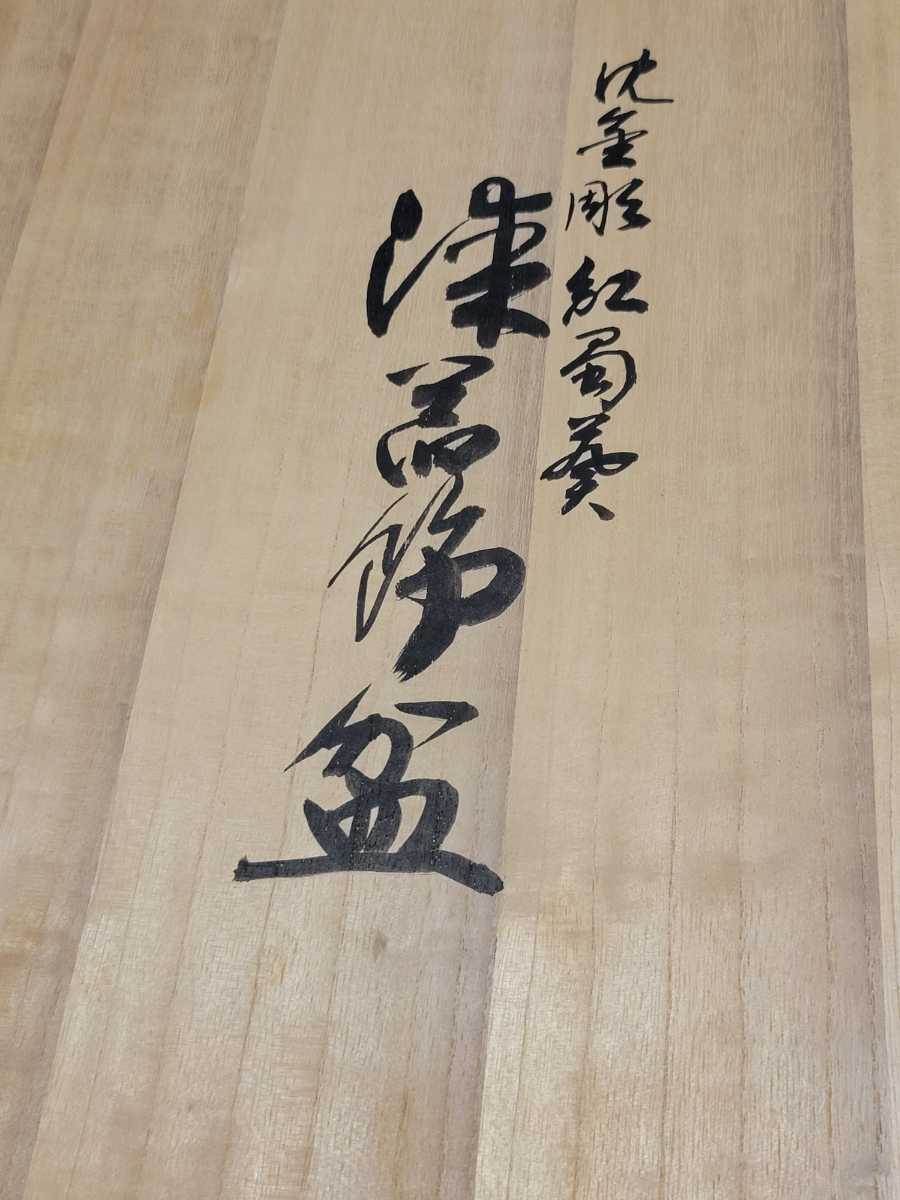 沈金彫 紅蜀葵
漆器飾盆